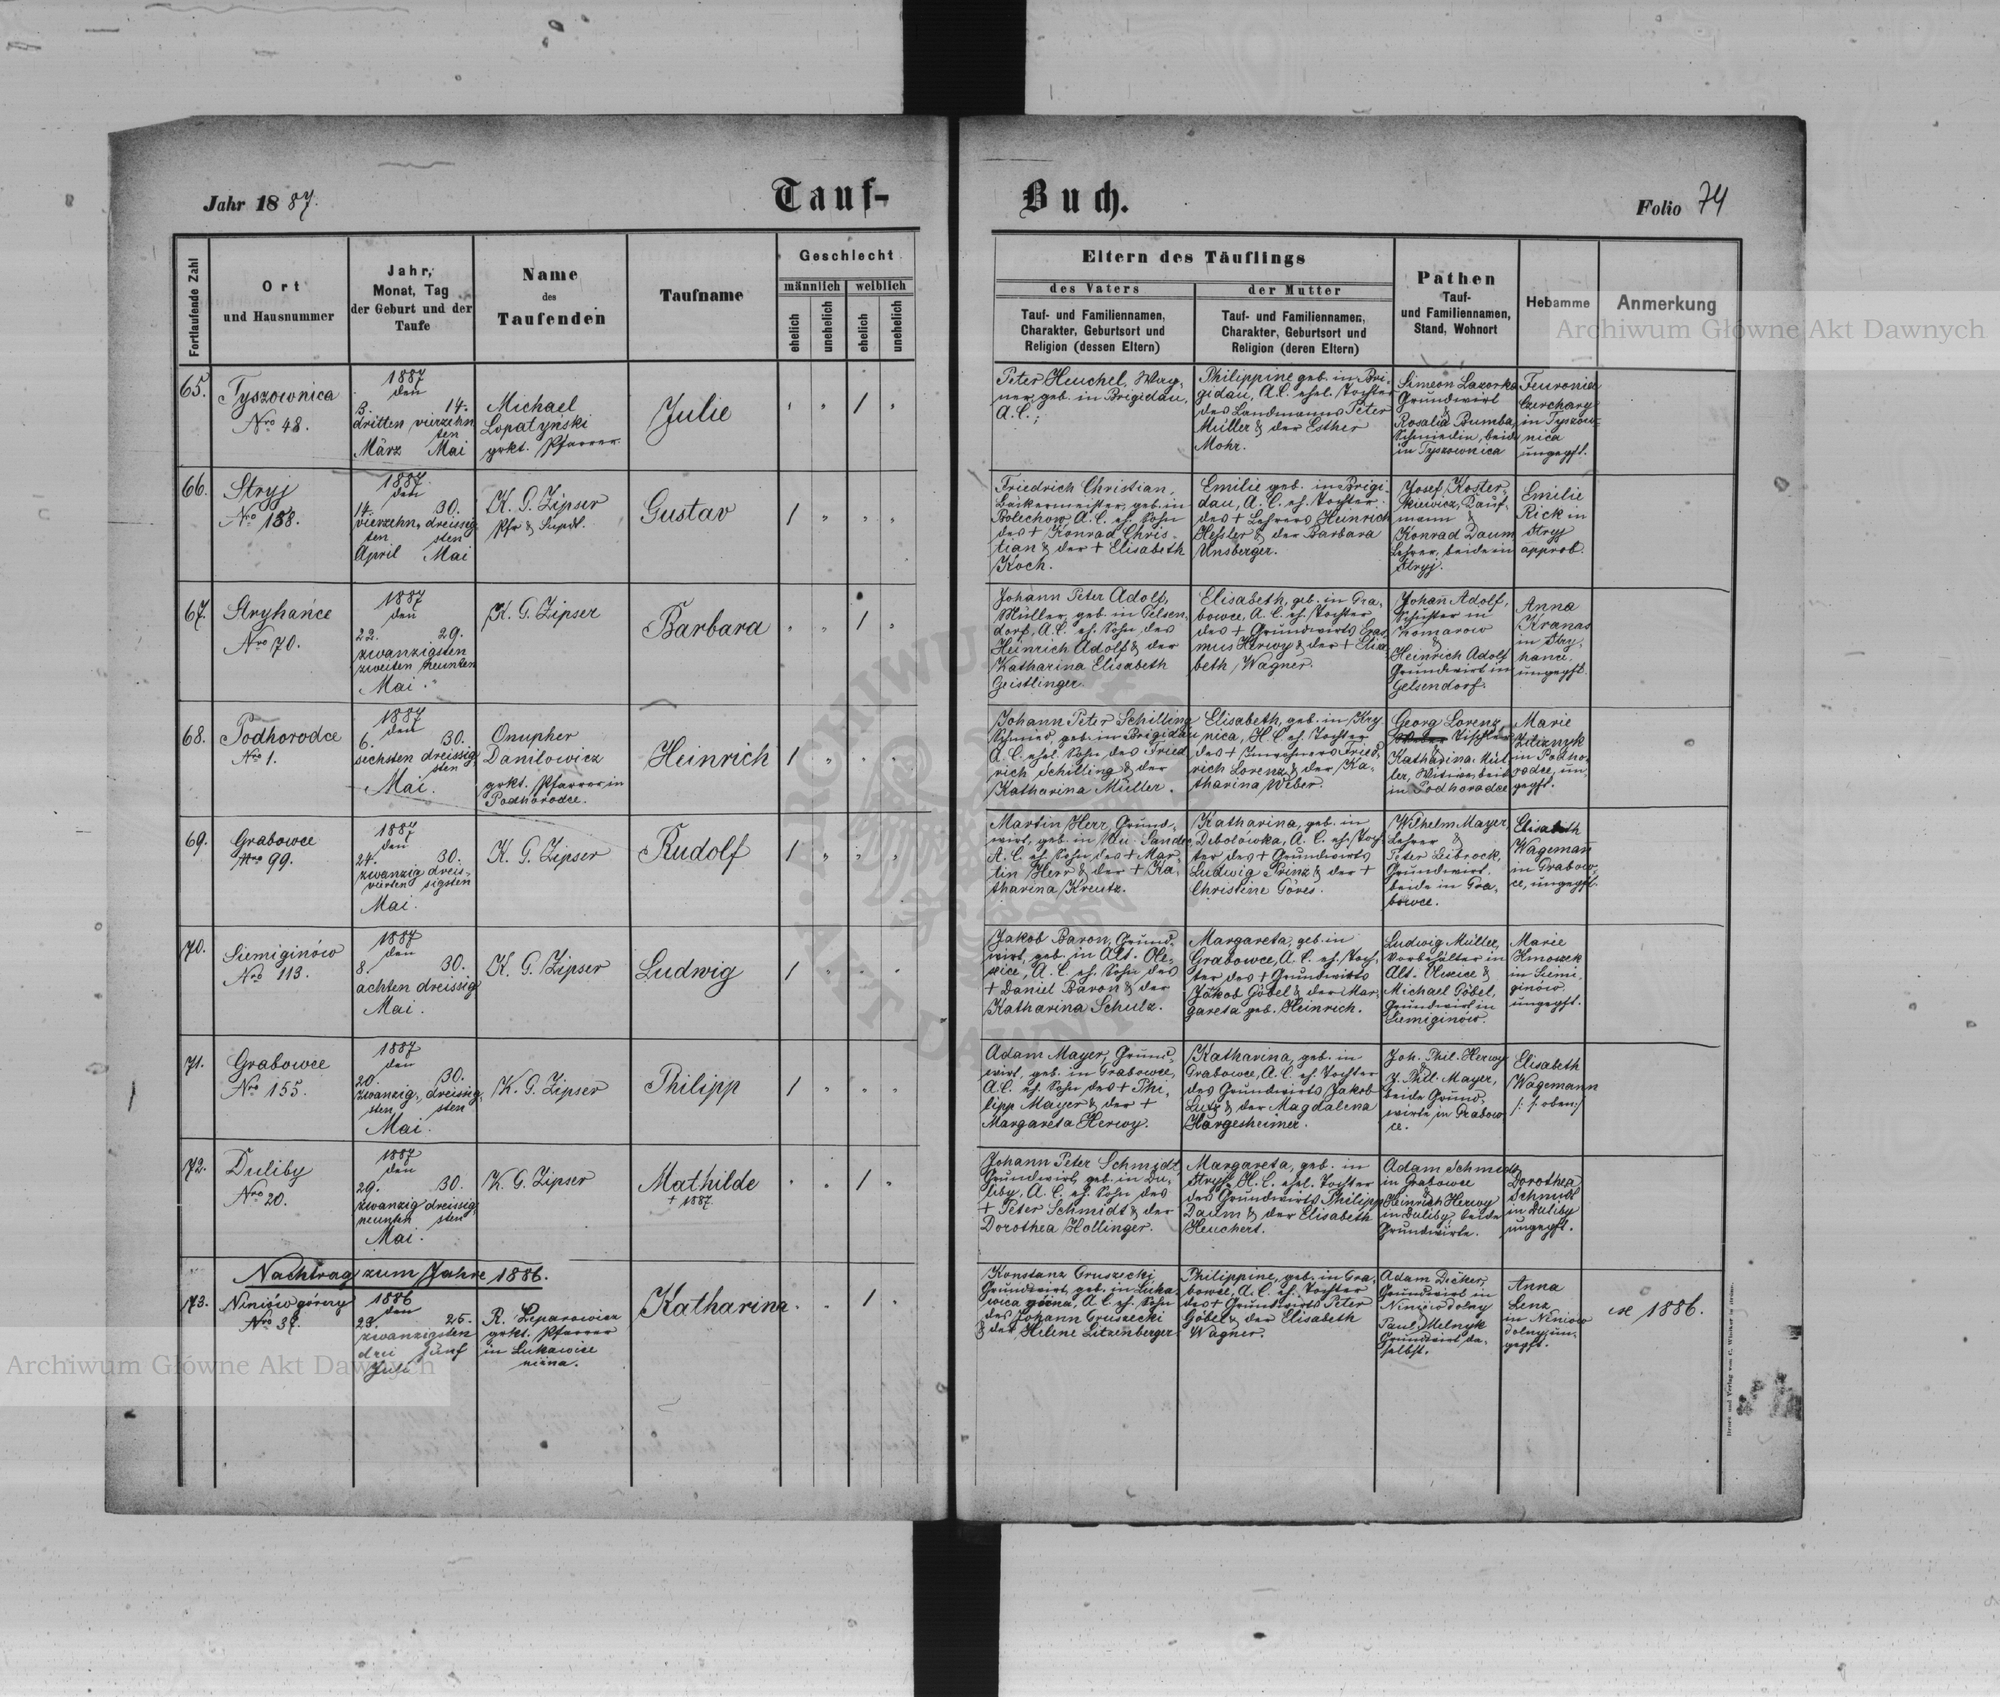 Jahr 1887.
Tauf-
Buch.
Folio 74
Fortlaufende Zahl
Ort
und Hausnummer
Jahr,
Monat, Tag
der Geburt und der
Taufe
Name
des
Taufenden
Taufname
Geschlecht
männlich
weiblich
ehelich
unehelich
ehelich
unehelich
Eltern des Täuflings
des Vaters
Tauf- und Familiennamen,
Charakter, Geburtsort und
Religion (dessen Eltern)
der Mutter
Tauf- und Familiennamen,
Charakter, Geburtsort und
Religion (deren Eltern)
Pathen
Tauf-
und Familiennamen,
Stand, Wohnort
Hebamme
Anmerkung
65.
Tyszownica
Nro 48.
1887
den
3. 14.
dritten vierzehn
ten
März Mai
Michael
Lopatynski
grkt. Pfarrer.
Julie
1
Peter Heuchel, Wag-
ner, geb. in Brigidau,
A.C.;
Philippine geb. in Bri-
gidau, A.C. ehel. Tochter
des Landmanns Peter
Müller & der Esther
Mohr.
Simeon Lazorko
Grundwirt
&
Rosalia Bumba,
Schmiedin, beide
in Tyszownica
Feuronia
in Tyszow-
nica
ungepft.
66.
Stryj
Nro 158.
1887
den
14. 30.
vierzehn- dreissig
ten sten
April Mai
K. G. Zipser
Pfr & Supdt.
Gustav
1
Friedrich Christian,
Bäckermeister, geb. in
Bolechow A.C. eh. Sohn
des + Konrad Chris-
tian & der + Elisabeth
Koch.
Emilie geb. in Brigi-
dau, A.C. eh. Tochter
des + Lehrers Heinrich
Hessler & der Barbara
Unsberger.
Josef Koster-
kiewicz, Kauf-
mann &
Konrad Daum
Lehrer, beide in
Stryj.
Emilie
Rick in
Stryj
approb.
67.
Stryhańce
Nro 70.
1887
den
22. 29.
zwanzigsten
zweiten neunten
Mai.
K. G. Zipser
Barbara
1
Johann Peter Adolf,
Müller, geb. in Gelsen-
dorf, A.C. eh. Sohn des
Heinrich Adolf & der
Katharina Elisabeth
Geistlinger.
Elisabeth, geb. in Gra-
bowce, A.C. eh. Tochter
des + Grundwirts Eras-
mus Herwy & der + Elisa-
beth Wagner.
Johann Adolf,
Schuster in
Komarow
&
Heinrich Adolf
Grundwirt in
Gelsendorf.
Anna
Kranas
in Stry-
hance,
ungepft.
68.
Podhorodce
Nro 1.
1887
den
6. 30.
sechsten dreissig-
sten
Mai.
Onupher
Danilowicz
grkt. Pfarrer in
Podhorodce.
Heinrich
1
Johann Peter Schilling
Schmied, geb. in Brigidau
A.C. ehel. Sohn des Fried-
rich Schilling & der
Katharina Müller.
Elisabeth, geb. in Kry-
nica, H.C. eh. Tochter
des + Inwohners Fried-
rich Lorenz & der Ka-
tharina Weber.
Georg Lorenz,
Tischler
Katharina Mül-
ler, Witwe, beide
in Podhorodce
Marie
Ziliznyk
in Podho-
rodce, un-
gepft.
69.
Grabowce
Nro 99.
1887
den
24. 30.
zwanzig dreis-
vierten sigsten
Mai.
K. G. Zipser
Rudolf
1
Martin Herr, Grund-
wirt, geb. in Neu-Sandec,
A.C. eh. Sohn des + Mar-
tin Herr & der + Ka-
tharina Kreutz.
Katharina, geb. in
Debolówka, A.C. eh. Toch-
ter des + Grundwirts
Ludwig Prinz & der +
Christine Göres.
Wilhelm Mayer,
Lehrer &
Peter Leibrock,
Grundwirt,
beide in Gra-
bowce.
Elisabeth
Wagemann
in Grabow-
ce, ungepft.
70.
Siemiginów
Nro 113.
1887
den
8. 30.
achten dreissig
Mai.
K. G. Zipser
Ludwig
1
Jakob Baron, Grund-
wirt, geb. in Alt-Ole-
xice, A.C. eh. Sohn des
+ Daniel Baron & der
Katharina Schulz.
Margareta, geb. in
Grabowce, A.C. eh. Toch-
ter des + Grundwirts
Jakob Göbel & der Mar-
gareta geb. Heinrich.
Ludwig Müller,
Vorbehälter in
Alt-Olexice &
Michael Göbel,
Grundwirt in
Siemiginów.
Marie
Kmoszek
in Siemi-
ginów,
ungepft.
71.
Grabowce
Nro 155.
1887
den
20. 30.
zwanzig- dreissig-
sten sten
Mai.
K. G. Zipser
Philipp
1
Adam Mayer, Grund-
wirt, geb. in Grabowce,
A.C. eh. Sohn des + Phi-
lipp Mayer & der +
Margareta Herwy.
Katharina, geb. in
Grabowce, A.C. eh. Tochter
des Grundwirts Jakob
Lutz & der Magdalena
Hargesheimer.
Joh. Phil. Herwy
&
J. Phil. Mayer,
beide Grund-
wirte in Grabow-
ce.
Elisabeth
Wagemann
/: s. oben :/
72.
Duliby
Nro 20.
1887
den
29. 30.
zwanzig dreissig-
neunten sten
Mai.
K. G. Zipser
Mathilde
+ 1887
1
Johann Peter Schmidt,
Grundwirt, geb. in Du-
liby, A.C. eh. Sohn des
+ Peter Schmidt & der
Dorothea Hollinger.
Margareta, geb. in
Stryj, H.C. ehel. Tochter
des Grundwirts Philipp
Daum & der Elisabeth
Heuchert.
Adam Schmidt
in Grabowce
&
Heinrich Herwy
in Duliby, beide
Grundwirte.
Dorothea
Schmidt
in Duliby
ungepft.
Nachtrag zum Jahre 1886.
73.
Niniów górny
Nro 37.
1886
den
23. 25.
zwanzigsten
drei fünf
Juli
R. Leparowicz
grkt. Pfarrer
in Lukawice
nizna.
Katharina
1
Konstanz Gruszecki
Grundwirt, geb. in Luka-
wica górna, A.C. eh. Sohn
des Johann Gruszecki
& der Helene Litzenberger.
Philippine, geb. in Gra-
bowce, A.C. eh. Tochter
des + Grundwirts Peter
Göbel & der Elisabeth
Wagner.
Adam Decker,
Grundwirt in
Niniow dolny
&
Paul Melnyk
Grundwirt da-
selbst.
Anna
Lenz
in Niniow
dolny, un-
gepft.
1886.
Druck und Verlag von C. Winiker in Brünn.
Archiwum Główne Akt Dawnych
Archiwum Główne Akt Dawnych